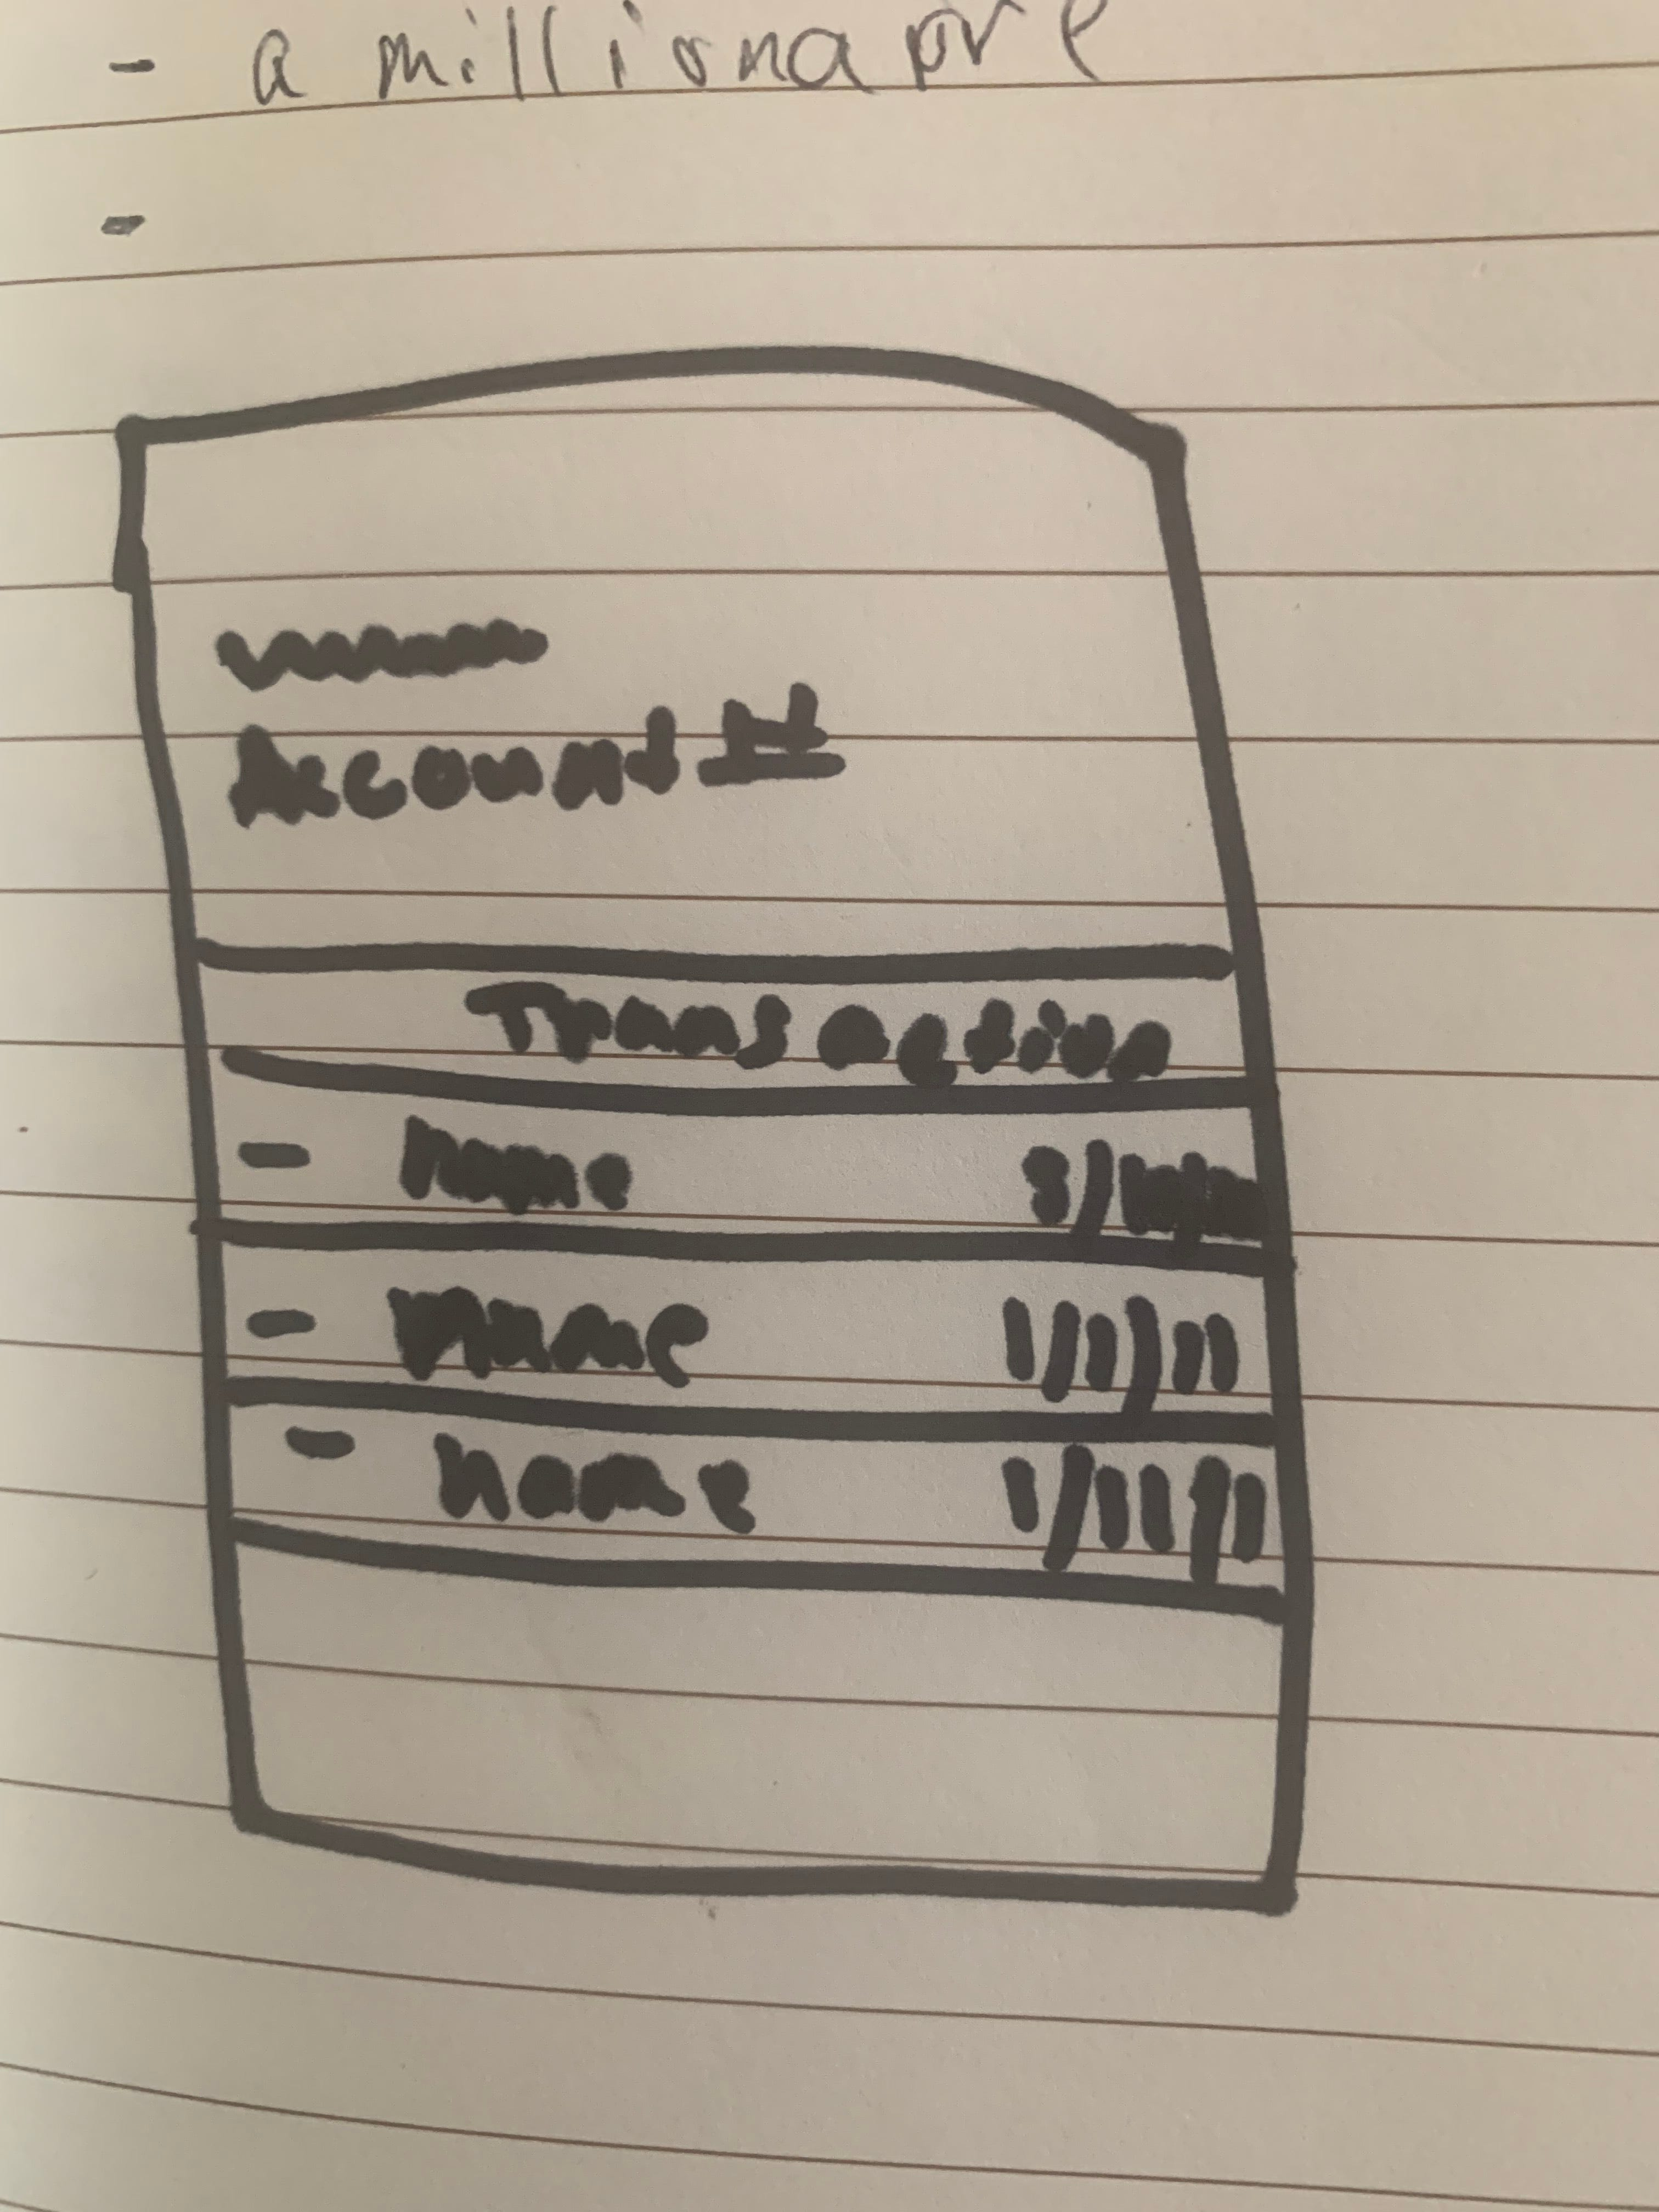 - a millionapre
-
Account #
Transaction
- name
- name 1/11/11
- name 1/11/11